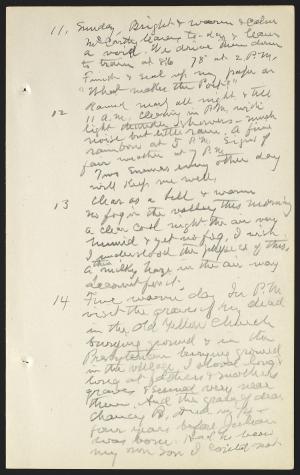 11, Sunday, Bright & warm & calm
McCarthy leaves to-day & leaves
a void. We drive them down
to train at 816 78° at 2 P.M.
Finish & seal up my paper on
"What makes the Poet?"
12 Rained near all night & till
11 A.M. Clearing in P.M. with
light thunder showers - much
noise but little rain. A fine
rainbow at 5 P.M. Signs of
fair weather at 7 P.M.
Two snowes every other day
will keep me well.
13 Clear as a bell & warm
no fog in the valley this morning
a clear cool night the air very
humid & yet no fog, I wish
I understood the physics of this,
A milky haze in the air may
account for it.
14 Fine warm day In P.M.
visit the graves of my dead
in the Old Yellow Church
burying ground & in the
Presbyterian burying ground
in the village. I stood long &
long at father's & mother's
graves & seemed very near
them. And the grave of dear
Chancy B. dead in 74 -
four years before Julian
was born. Had he been
my own son I could not